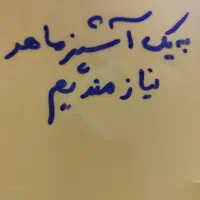 به یک آشپز ماهر
نیازمندیم